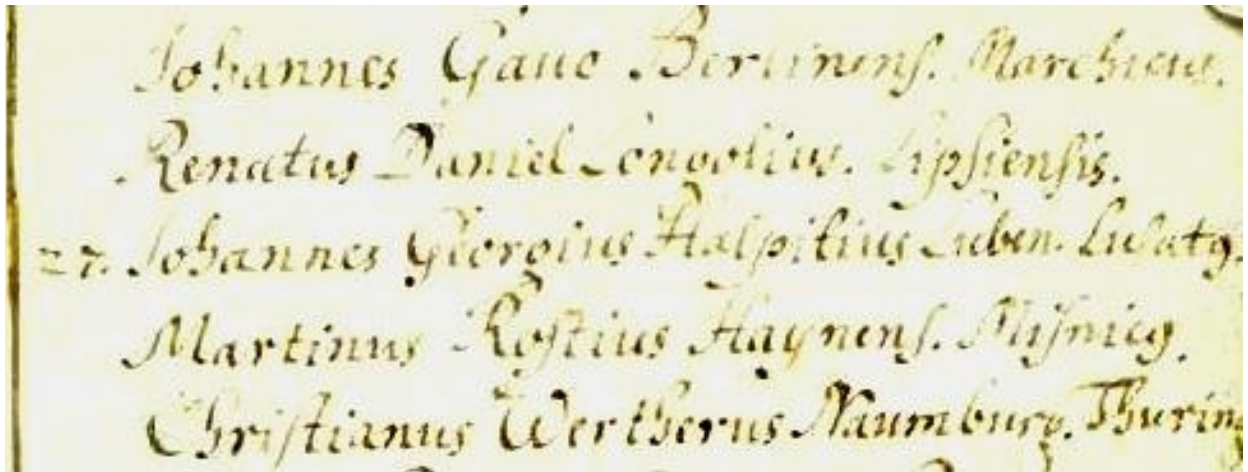 Johannes Gaue Berlinens. Marchicus.
Renatus Daniel Longolius. Lipsiensis.
27. Johannes Georgius Halpitius Luben. Lusatq.
Martinus Rostius Haynens. Misnicq.
Christianus Wertherus Naumburg. Thuring